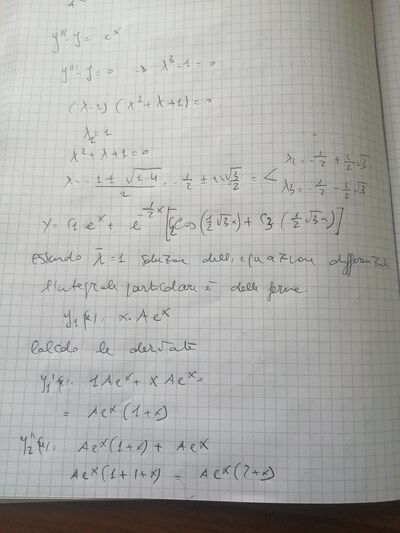 y''' - y = e^x
y''' - y = 0 → λ³ - 1 = 0
(λ-1) (λ² + λ + 1) = 0
λ₁ = 1
λ² + λ + 1 = 0
λ = -1 ± √1-4 / 2 = -1/2 ± i √3/2 = < λ₂ = -1/2 + i/2 √3
λ₃ = -1/2 - i/2 √3
y = C₁ e^x + e^(-1/2 x) [C₂ cos (1/2 √3 x) + C₃ (1/2 √3 x)]
essendo λ̄ = 1 soluzione dell'equazione differenziale
l'integrale particolare è della forma
y₁(x) = x · A e^x
Calcolo le derivate
y₁'(x) = 1 A e^x + x A e^x =
= A e^x · (1+x)
y₂''(x) = A e^x (1+x) + A e^x
A e^x (1+1+x) = A e^x (2+x)